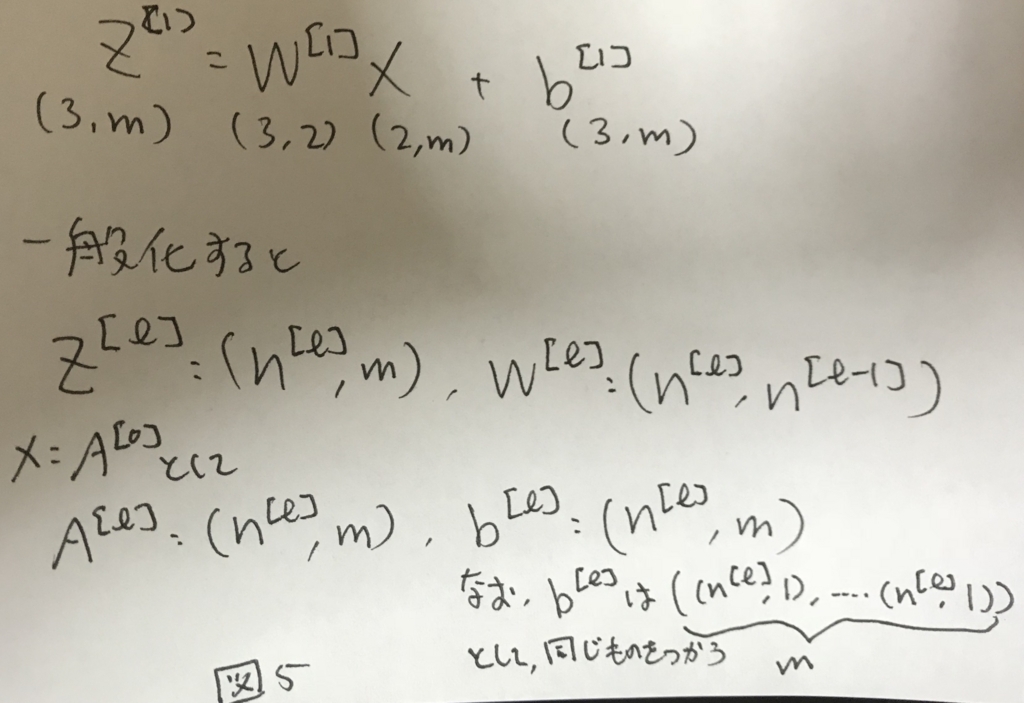 Z^[1] = W^[1] X + b^[1]
(3,m) (3,2) (2,m) (3,m)
一般化すると
Z^[l]: (n^[l], m), W^[l]: (n^[l], n^[l-1])
X = A^[0] として
A^[l]: (n^[l], m), b^[l]: (n^[l], m)
なお, b^[l]は ((n^[l], 1), ---- (n^[l], 1))
として, 同じものをつかう
m
図5